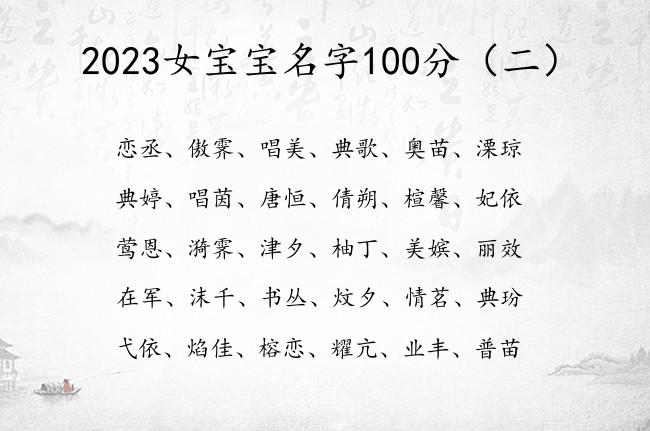 2023女宝宝名字100分（二）
恋丞、傲霁、唱美、典歌、奥苗、溧琼
典婷、唱茵、唐恒、倩朔、楦馨、妃依
莺恩、漪霁、津夕、柚丁、美嫔、丽效
在军、沫千、书丛、炆夕、情茗、典玢
弋依、焰佳、榕恋、耀亢、业丰、普苗